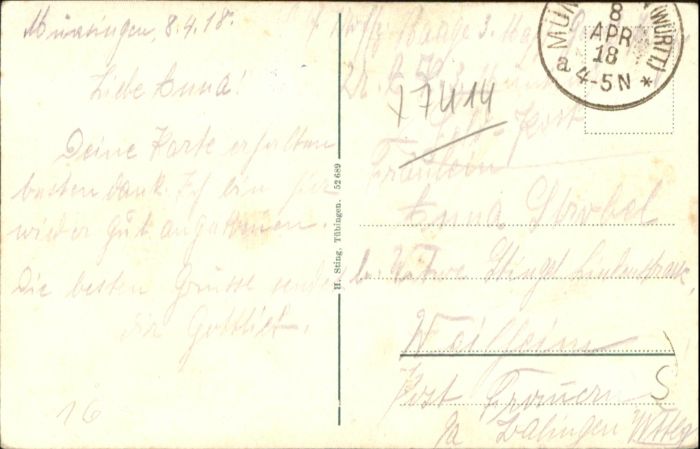 Münsingen, 8.4.18.
Liebe Anna!
Deine Karte erhalten
besten dank. Ich bin hier
wieder gut angekommen.
Die besten Grüsse sendet
dir Gottlieb.
16
H. Sting, Tübingen. 52689
MÜN (WÜRTT.)
8
APR
18
a 4-5 N *
17414
Feld-Post
Fräulein
Anna Strobel
Witwe Stingel
Weilheim
Post Frommern
Balingen Wttbg
S